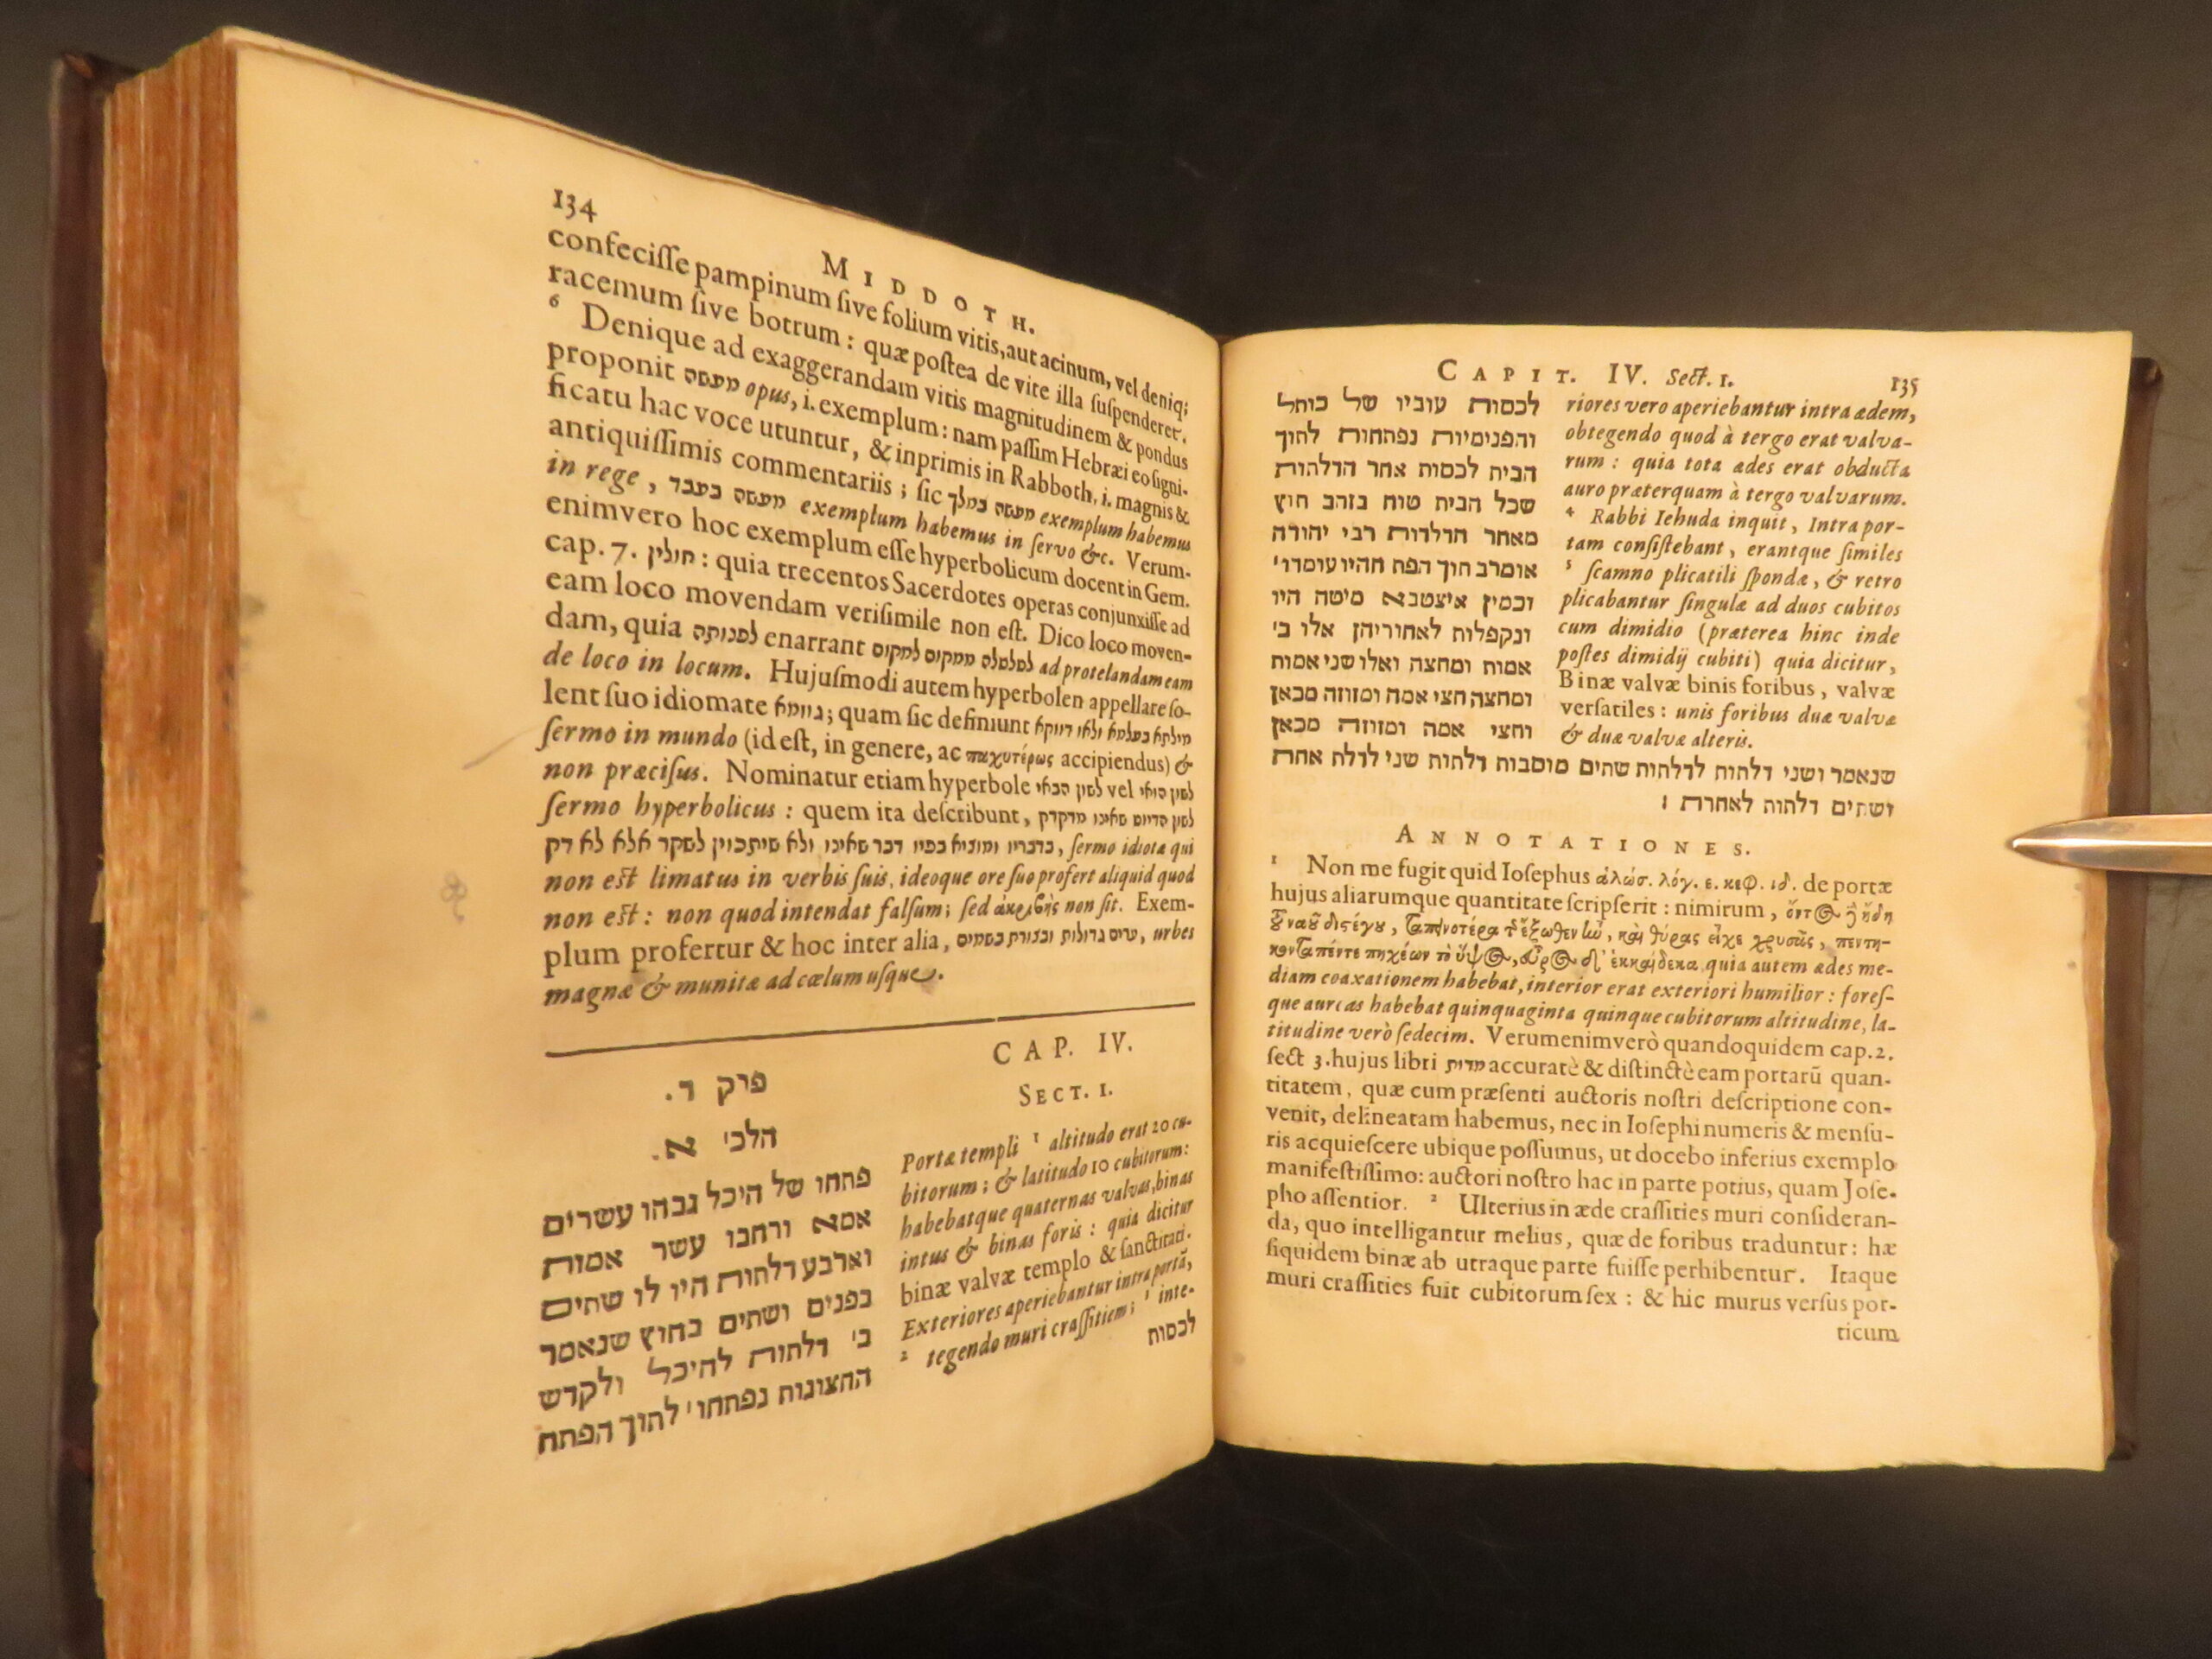 134
MIDDOTH.
confeciſſe pampinum ſive folium vitis, aut acinum, vel deniq;
racemum ſive botrum : quæ poſtea de vite illa ſuſpenderet.
6 Denique ad exaggerandam vitis magnitudinem & pondus
proponit מעשה opus, i. exemplum : nam paſſim Hebræi eo ſigni-
ficatu hac voce utuntur, & inprimis in Rabboth, i. magnis &
antiquiſſimis commentariis ; ſic מעשה במלך exemplum habemus
in rege , מעשה בעבד exemplum habemus in ſervo &c. Verum-
enimvero hoc exemplum eſſe hyperbolicum docent in Gem.
cap. 7. חולין : quia trecentos Sacerdotes operas conjunxiſſe ad
eam loco movendam veriſimile non eſt. Dico loco moven-
dam, quia לפנותה enarrant לשלשלה ממקום למקום ad protelandam eam
de loco in locum. Hujuſmodi autem hyperbolen appellare ſo-
lent ſuo idiomate גוזמא ; quam ſic definiunt מילתא בעלמא ולאו דווקא
ſermo in mundo (id eſt, in genere, ac παχυτέρως accipiendus) &
non præciſus. Nominatur etiam hyperbole לשון הבאי vel לשון הואי
ſermo hyperbolicus : quem ita deſcribunt, לשון הדיוט שאינו מדקדק
בדבריו ומוציא בפיו דבר שאינו ולא שיתכוין לשקר אלא לא דק, ſermo idiotæ qui
non eſt limatus in verbis ſuis, ideoque ore ſuo profert aliquid quod
non eſt : non quod intendat falſum ; ſed ἀκριβὴς non ſit. Exem-
plum profertur & hoc inter alia, ערים גדולות ובצורת בשמים, urbes
magnæ & munitæ ad cœlum uſque.
פיק ד.
הלכ' א.
פתחו של היכל גבהו עשרים
אמא ורחבו עשר אמות
וארבע דלתות היו לו שתים
בפנים ושתים בחוץ שנאמר
ב' דלתות להיכל ולקדש
החצונות נפתחו' לתוך הפתח
CAP. IV.
SECT. I.
Portæ templi 1 altitudo erat 20 cu-
bitorum ; & latitudo 10 cubitorum :
habebatque quaternas valvas, binas
intus & binas foris : quia dicitur
binæ valvæ templo & ſanctitati.
Exteriores aperiebantur intra portã,
2 tegendo muri craſſitiem ; inte-
לכסות
CAPIT. IV. Sect. 1.
135
לכסות עוביו של כותל
והפנימיות נפתחות לתוך
הבית לכסות אחר הדלתות
שכל הבית טוח בזהב חוץ
מאחר הדלדות רבי יהודה
אומרב תוך הפת חהיו עומדו'
וכמין איצטבא מיטה היו
ונקפלות לאחוריהן אלו ב'
אמות ומחצה ואלו שני אמות
ומחצה חצי אמה ומזוזה מכאן
וחצי אמה ומזוזה מכאן
שנאמר ושני דלתות לדלתות שתים מוסבות דלתות שני לדלת אחת
ושתים דלתות לאחרת :
riores vero aperiebantur intra ædem,
obtegendo quod à tergo erat valva-
rum : quia tota ædes erat obducta
auro præterquam à tergo valvarum.
4 Rabbi Iehuda inquit, Intra por-
tam conſiſtebant, erantque ſimiles
5 ſcamno plicatili ſpondæ, & retro
plicabantur ſingulæ ad duos cubitos
cum dimidio (præterea hinc inde
poſtes dimidij cubiti) quia dicitur,
Binæ valvæ binis foribus, valvæ
verſatiles : unis foribus duæ valvæ
& duæ valvæ alteris.
ANNOTATIONES.
1 Non me fugit quid Ioſephus ἁλώσ. λόγ. ε. κεφ. ιδ. de portæ
hujus aliarumque quantitate ſcripſerit : nimirum, ὄντ⊙ ἤδη
τοῦ ναοῦ διστέγου, ταπεινοτέρα τῆς ἔξωθεν ἦν, καὶ θύρας εἶχε χρυσᾶς, πεντη-
κονταπέντε πηχέων τὸ ὕψ⊙, εὖρ⊙ δ' ἑκκαίδεκα quia autem ædes me-
diam coaxationem habebat, interior erat exteriori humilior : foreſ-
que aureas habebat quinquaginta quinque cubitorum altitudine, la-
titudine verò ſedecim. Verumenimverò quandoquidem cap. 2.
ſect 3. hujus libri מדות accuratè & diſtinctè eam portarũ quan-
titatem, quæ cum præſenti auctoris noſtri deſcriptione con-
venit, delineatam habemus, nec in Ioſephi numeris & menſu-
ris acquieſcere ubique poſſumus, ut docebo inferius exemplo
manifeſtiſſimo: auctori noſtro hac in parte potius, quam Joſe-
pho aſſentior. 2 Ulterius in æde craſſities muri conſideran-
da, quo intelligantur melius, quæ de foribus traduntur : hæ
ſiquidem binæ ab utraque parte fuiſſe perhibentur. Itaque
muri craſſities fuit cubitorum ſex : & hic murus verſus por-
ticum